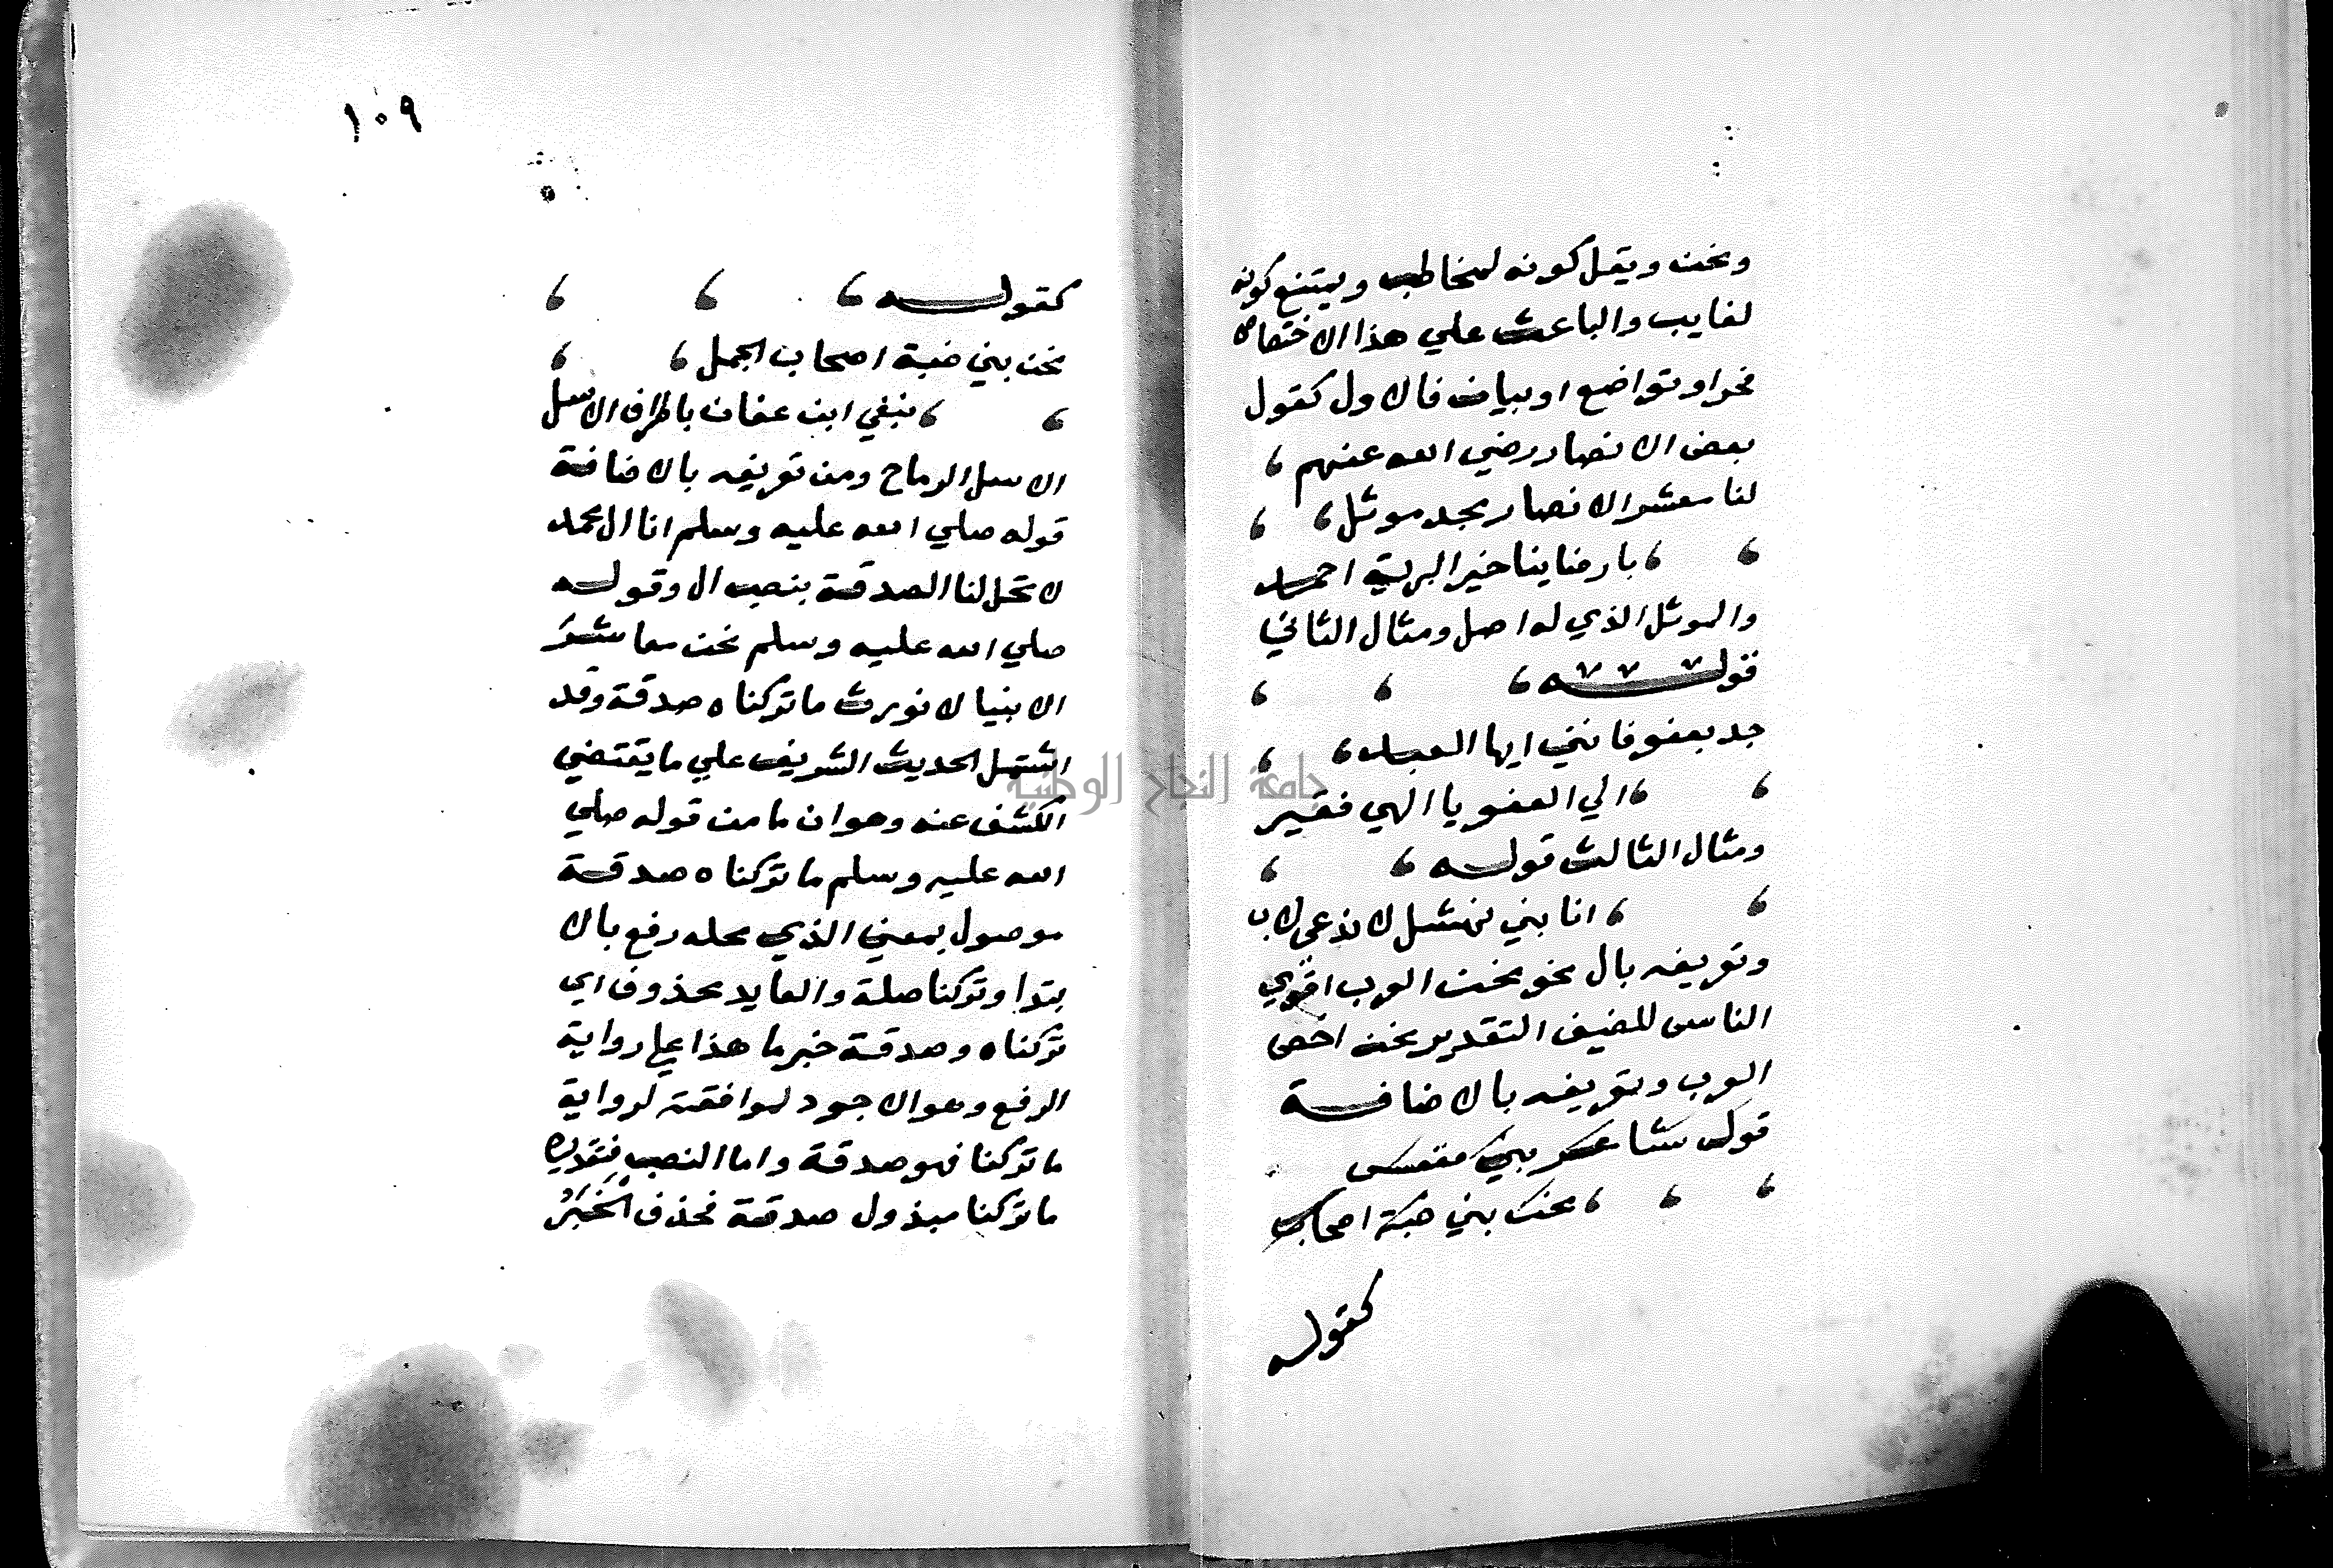 ونحن ويقل كونه لمخاطب ويمتنع كونه
لغايب والباعث علي هذا الاختصاص
فخر او تواضع او بيان فالاول كقول
بعض الانصار رضي الله عنهم ،
لنا معشر الانصار مجد موثل ، ،
، ، بارضاينا خير البرية احمد
والموثل الذي له اصل ومثال الثاني
قوله ، ، ،
جد بعفو فانني ايها العبد ، ،
، ، الي العفو يا الهي فقير
ومثال الثالث قوله ، ،
، ، انا بني نهشل لا ندعي لاب
وتعريفه بال نحو نحن العرب اقري
الناس للضيف التقدير نحن اخص
العرب وتعريفه بالاضافة
قول شاعر بني
، ، ، نحن بني ضبة اصحاب
كقوله
١٠٩
كقوله ، ، ،
نحن بني ضبة اصحاب الجمل ، ،
، ، ننعي ابن عفان باطراف الاسل
الاسل الرماح ومن تعريفه بالاضافة
قوله صلي الله عليه وسلم انا ال محمد
لا تحل لنا الصدقة بنصب ال وقوله
صلي الله عليه وسلم نحن معاشرَ
الانبيا لا نورث ما تركناه صدقة وقد
اشتمل الحديث الشريف علي ما يقتضي
الكشف عنه وهو ان ما من قوله صلي
الله عليه وسلم ما تركناه صدقة
موصول بمعني الذي محله رفع بالا
بتدا وتركنا صلة والعايد محذوف اي
تركناه وصدقة خبر ما هذا علي رواية
الرفع وهو الاجود لموافقته لرواية
ما تركنا فهو صدقة واما النصب فتقديره
ما تركنا مبذول صدقة فحذف الْخَبَرُ
جامعة النجاح الوطنية